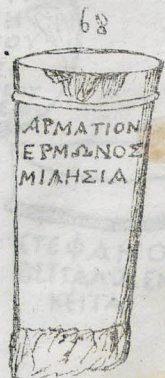 68
ΑΡΜΑΤΙΟΝ
ΕΡΜΩΝΟΣ
ΜΙΛΗΣΙΑ